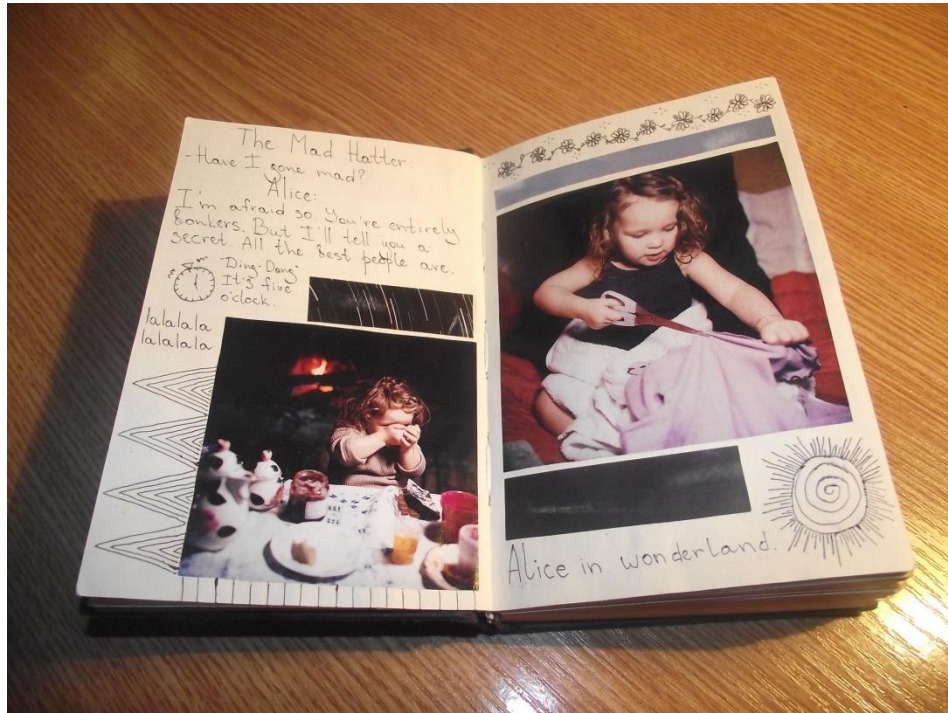 The Mad Hatter:
- Have I gone mad?
Alice:
I'm afraid so. You're entirely
bonkers. But I'll tell you a
secret. All the best people are.
Ding-Dong
It's five
o'clock.
lalalala
lalalala
Alice in wonderland.